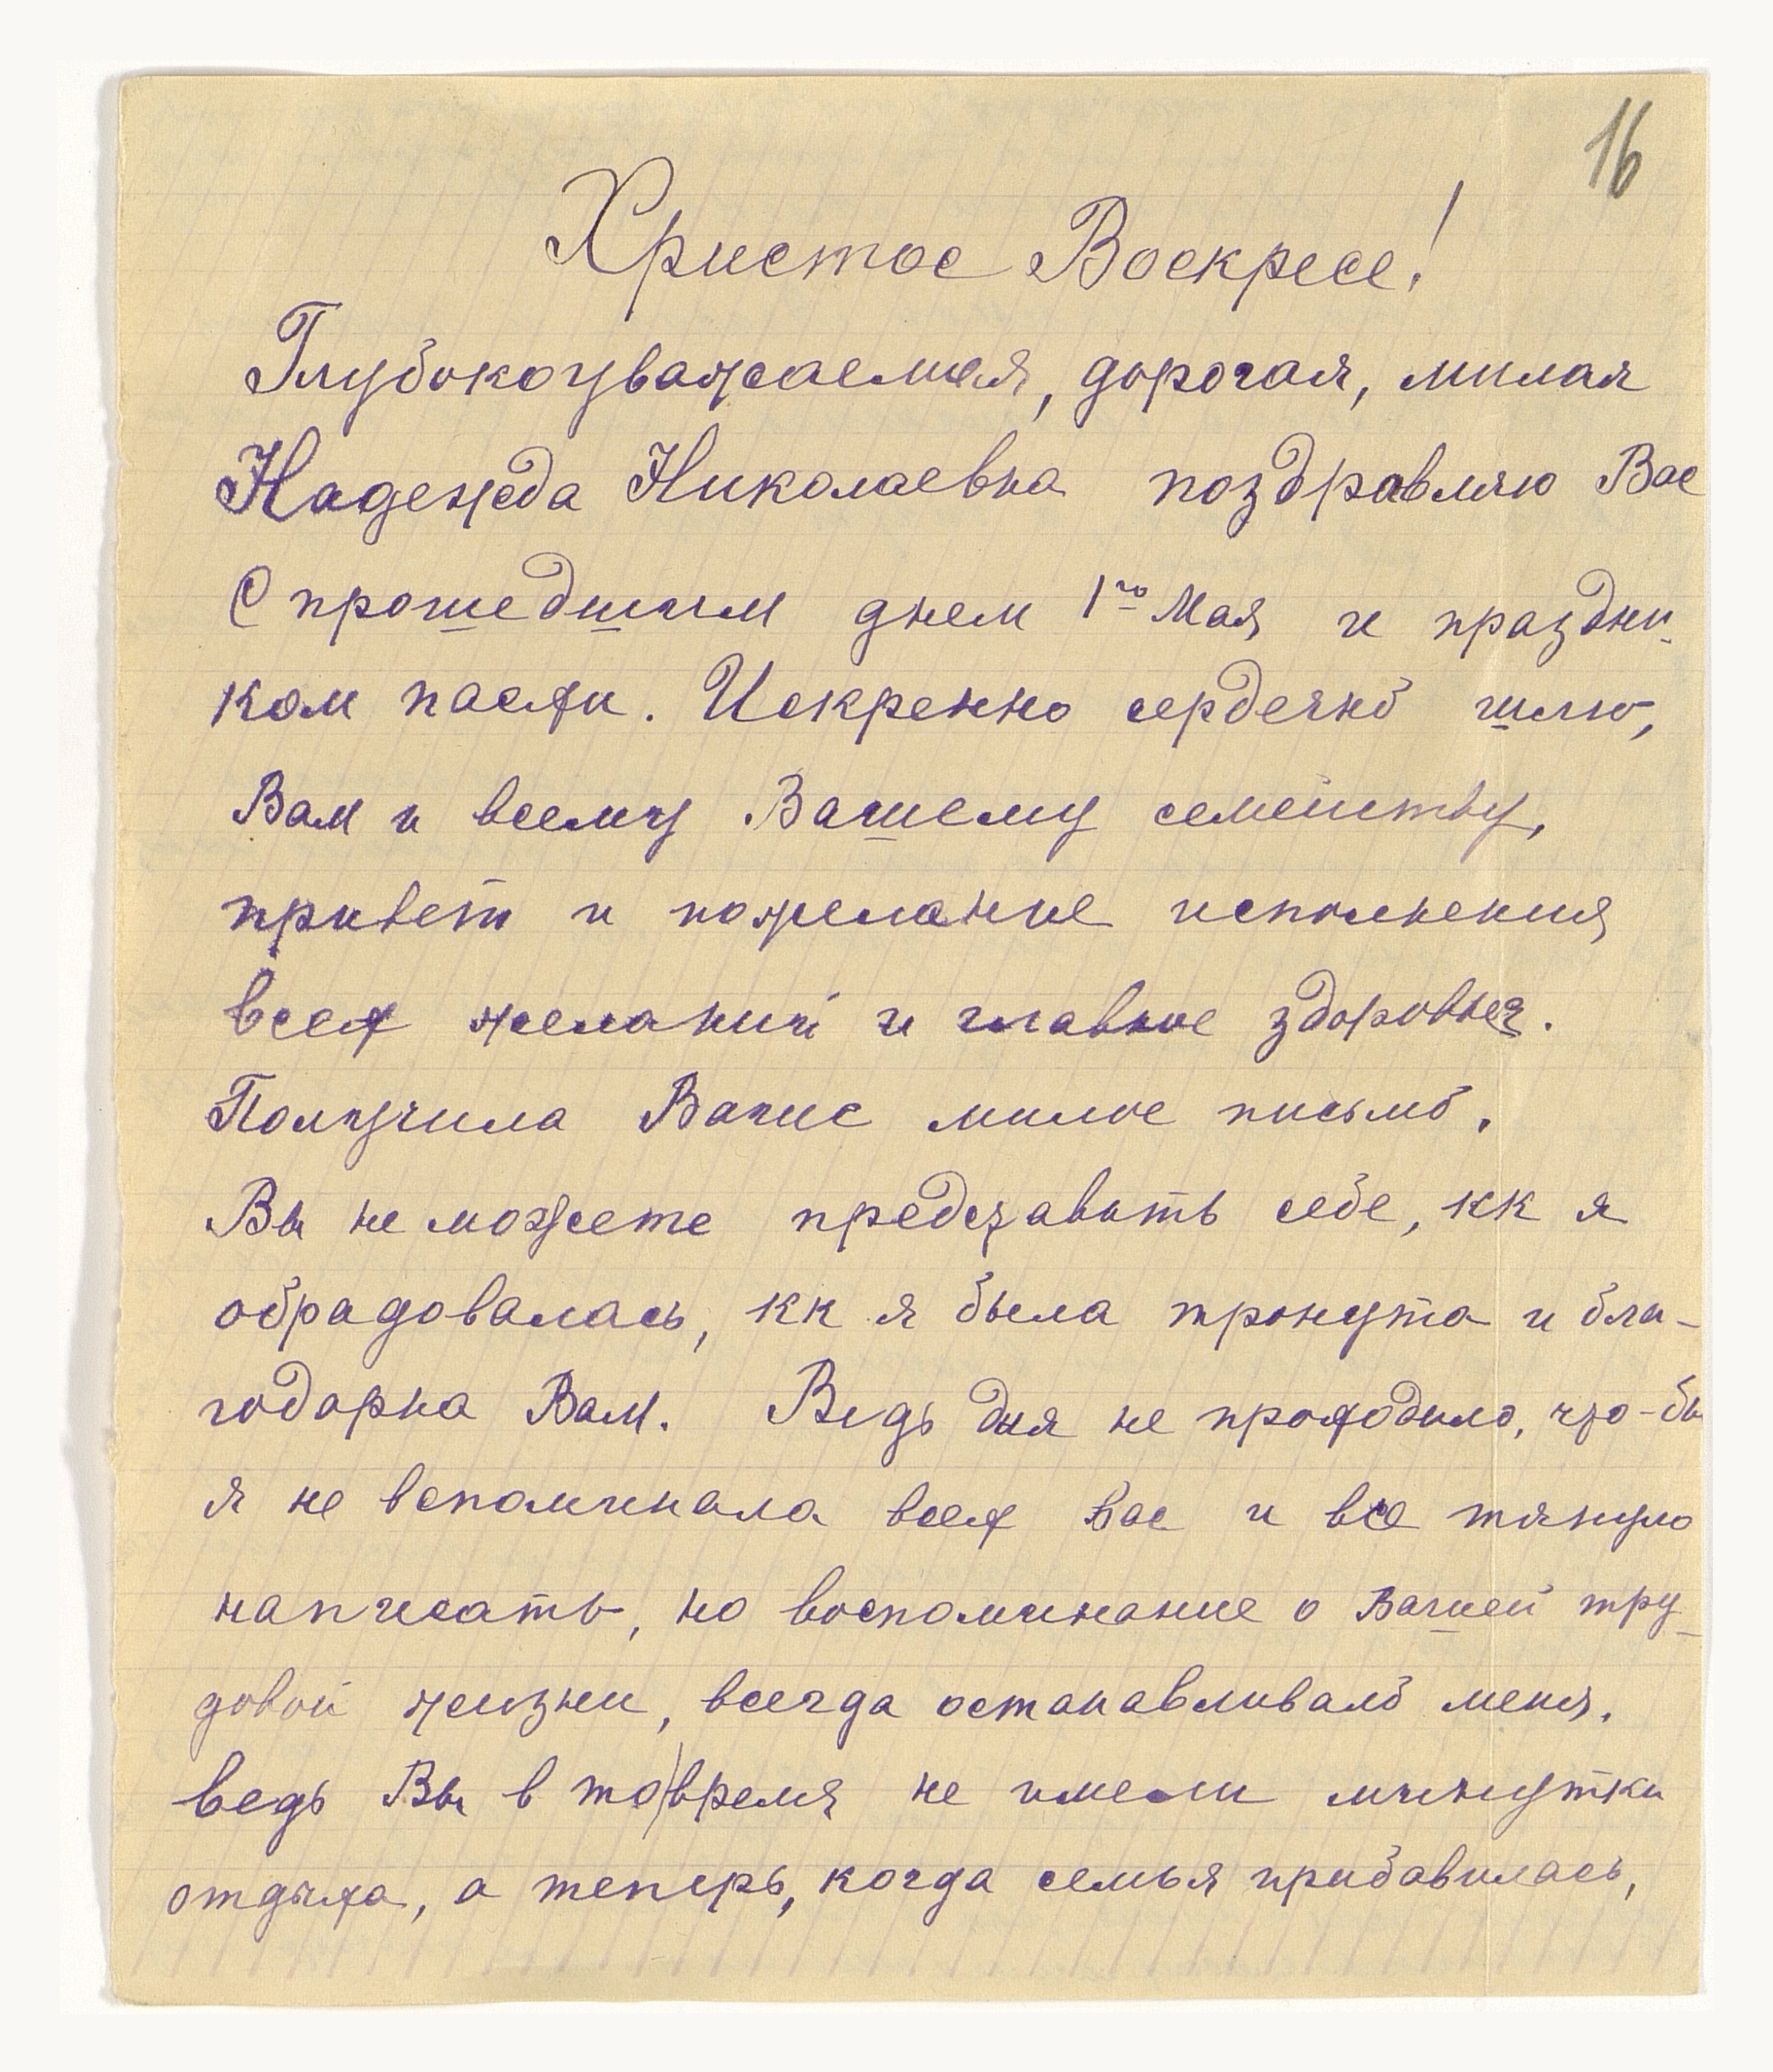 16
Христос Воскресе!
Глубокоуважаемая, дорогая, милая
Надежда Николаевна поздравляю Вас
С прошедшим днем 1го Мая и праздни-
ком пасхи. Искренно сердечно шлю,
Вам и всему Вашему семейству,
привет и пожелание исполнения
всех желаний и главное здоровья.
Получила Ваше милое письмо.
Вы не можете представить себе, кк я
обрадовалась, кк я была тронута и бла-
годарна Вам. Ведь дня не проходило, что-бы
я не вспоминала всех Вас и все тянуло
написать, но воспоминание о Вашей тру-
довой жизни, всегда останавливало меня.
ведь Вы в то время не имели минутки
отдыха, а теперь, когда семья прибавилась,